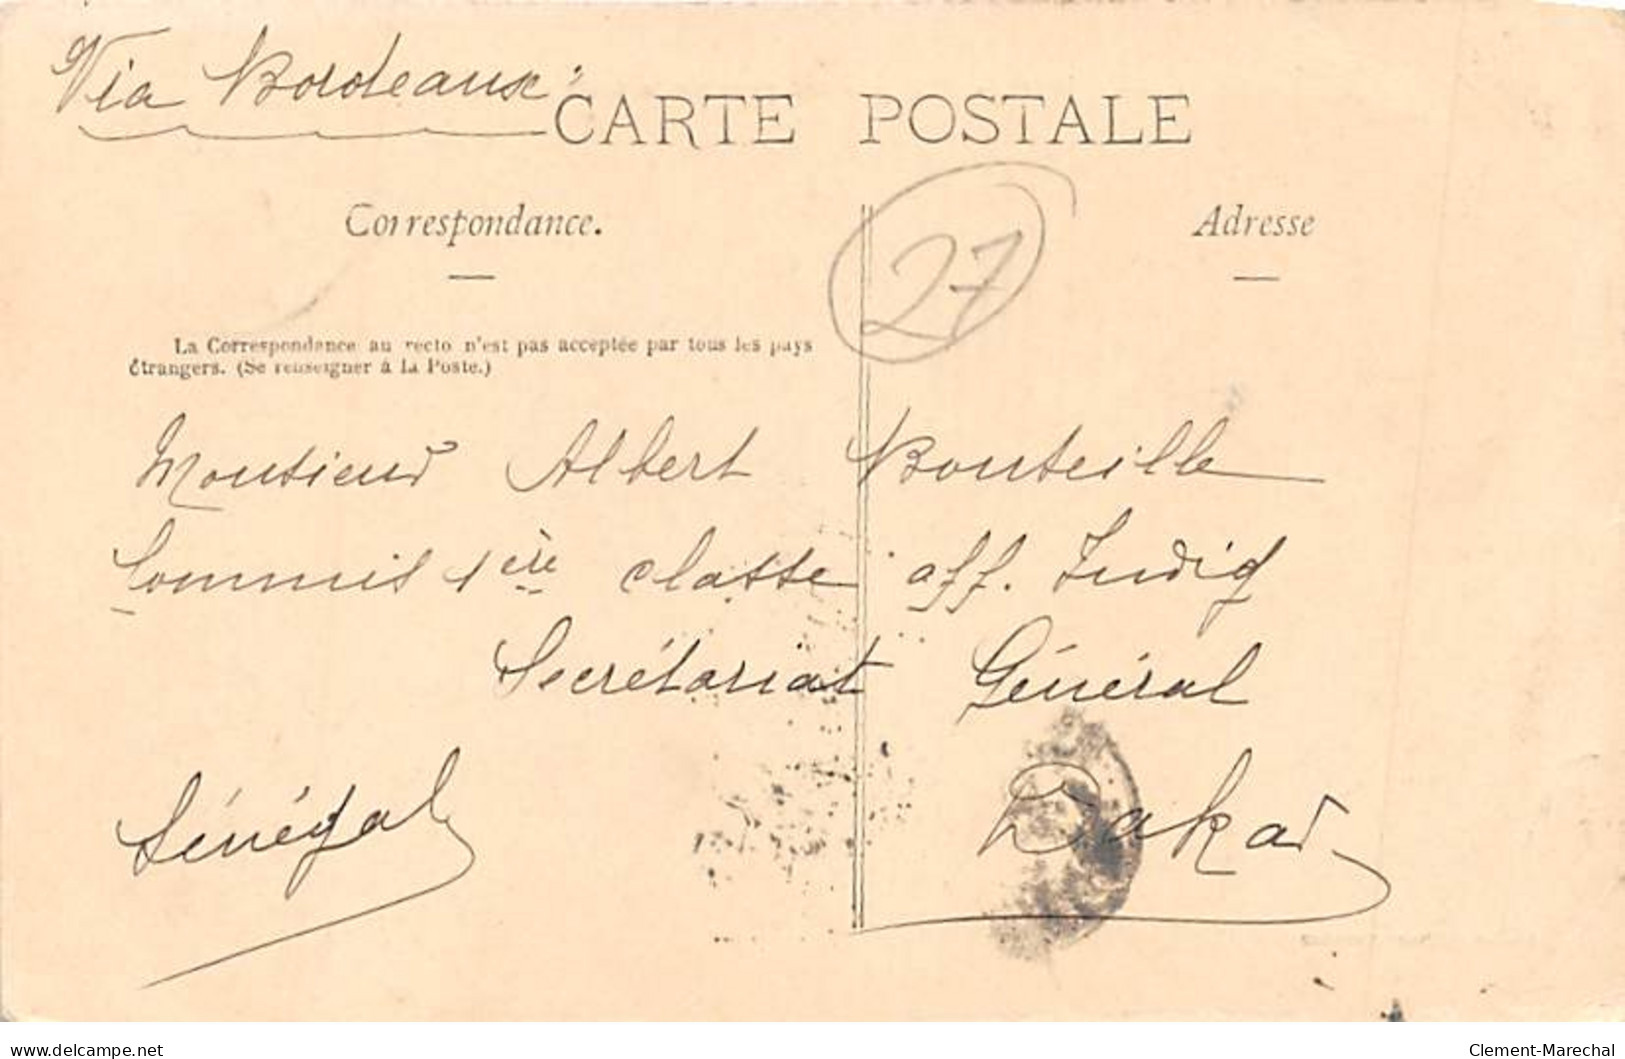 Via Bordeaux
CARTE POSTALE
Correspondance.
Adresse
27
La Correspondance au recto n'est pas acceptée par tous les pays
étrangers. (Se renseigner à la Poste.)
Monsieur Albert Bouteille
Commis 1ère classe aff. Indig
Secrétariat Général
Dakar
Sénégal
www.delcampe.net
Clement-Marechal